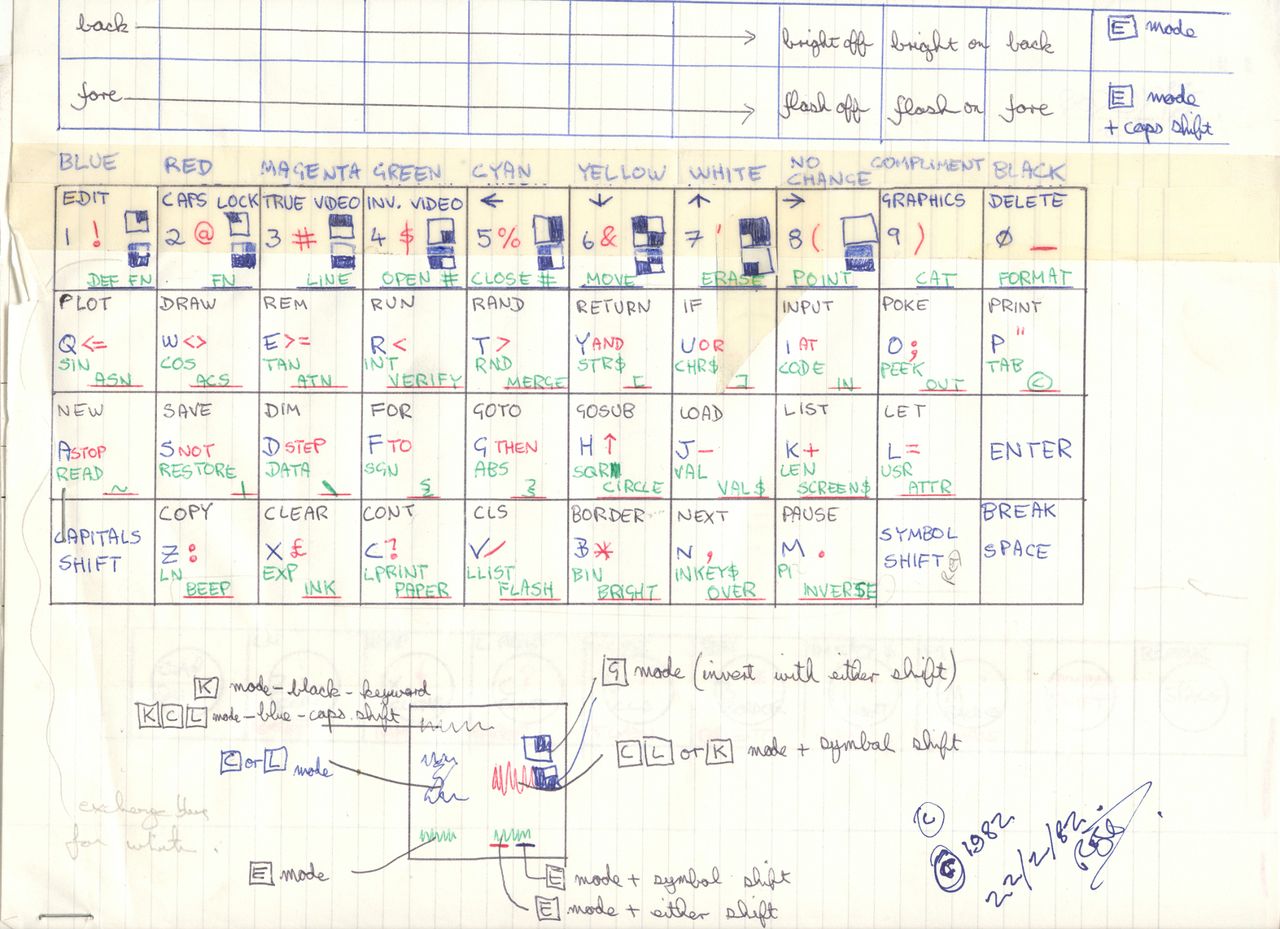 back bright off bright on back E mode
fore flash off flash on fore E mode
+ caps shift
BLUE RED MAGENTA GREEN CYAN YELLOW WHITE NO CHANGE COMPLIMENT BLACK
EDIT CAPS LOCK TRUE VIDEO INV. VIDEO ← ↓ ↑ → GRAPHICS DELETE
1 ! 2 @ 3 # 4 $ 5 % 6 & 7 ' 8 ( 9 ) 0 _
DEF FN FN LINE OPEN # CLOSE # MOVE ERASE POINT CAT FORMAT
PLOT DRAW REM RUN RAND RETURN IF INPUT POKE PRINT
Q <= W <> E >= R < T > Y AND U OR I AT O ; P "
SIN COS TAN INT RND STR$ CHR$ CODE PEEK TAB
ASN ACS ATN VERIFY MERGE [ ] IN OUT ©
NEW SAVE DIM FOR GOTO GOSUB LOAD LIST LET
A STOP S NOT D STEP F TO G THEN H ↑ J − K + L = ENTER
READ RESTORE DATA SGN ABS SQR VAL LEN USR
~ | \ { } CIRCLE VAL$ SCREEN$ ATTR
COPY CLEAR CONT CLS BORDER NEXT PAUSE BREAK
CAPITALS SHIFT Z : X £ C ? V / B * N , M . SYMBOL SHIFT SPACE
LN EXP LPRINT LLIST BIN INKEY$ PI
BEEP INK PAPER FLASH BRIGHT OVER INVERSE
G mode (invert with either shift)
K mode-black-keyword
K C L mode-blue-caps shift
C L or K mode + symbol shift
C or L mode
exchange
for white.
E mode
E mode + symbol shift
E mode + either shift
C
© 1982
22/2/82.